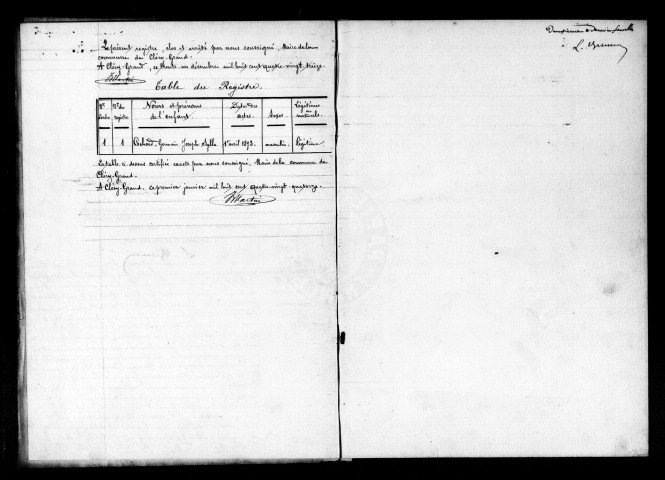 Le présent registre, clos et arrêté par nous soussigné, Maire de la
commune de Cléry-Grand.
A Cléry-Grand, ce trente un décembre mil huit cent quatre-vingt treize.
Martin
Table du Registre.
Nos d'ordre
Nos du registre
Noms et prénoms de l'enfant.
Date des actes.
Sexes.
Légitimes ou naturels.
1 1 Germain Joseph 1er avril 1893. masculin légitime
La table ci-dessus certifiée exacte par nous soussigné, Maire de la commune de
Cléry-Grand.
A Cléry-Grand, ce premier janvier mil huit cent quatre-vingt-quatorze.
Martin
Deuxième et dernier feuillet